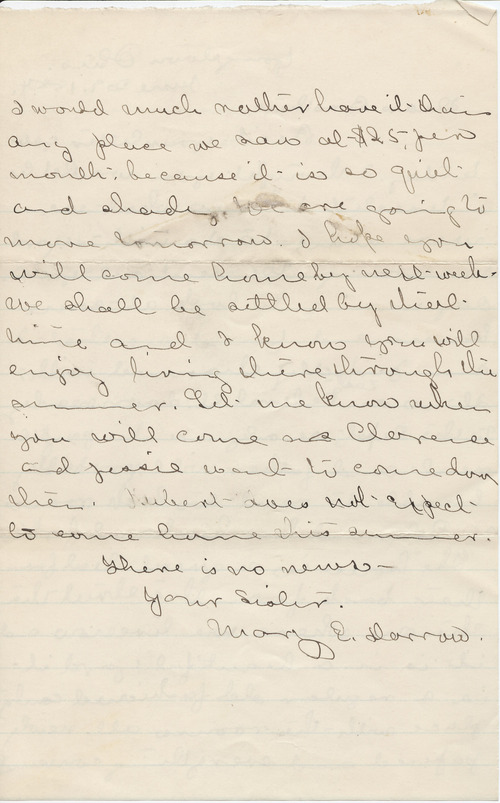 I would much rather have it than
any place we saw at $25. per
month. because it is so quiet
and shady. We are going to
move tomorrow. I hope you
will come home by next week.
We shall be settled by that
time and I know you will
enjoy living there through the
summer. Let me know when
you will come as Clarence
and Jessie want to come down
then. Hubert does not expect
to come home this summer.
There is no news—
Your Sister.
Mary E. Darrow.